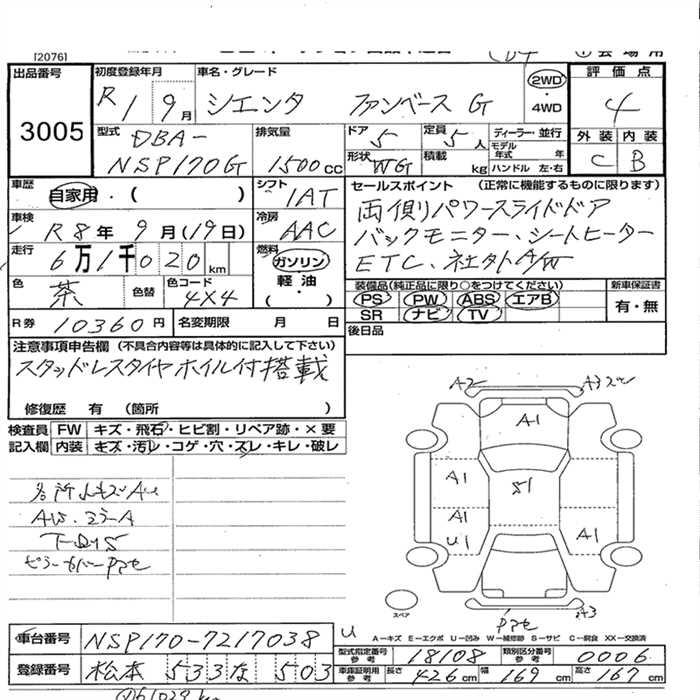 [2076]
出品番号 初度登録年月 車名・グレード 2WD ・4WD 評価点
3005 R1 9月 シエンタ ファンベース G 4
型式 DBA- 排気量 ドア 5 定員 5人 ディーラー・並行 外装 内装
NSP170G 1500cc 形状 WG 積載 kg モデル年式 年 ハンドル 左・右 C B
車歴 自家用・( ) シフト 1AT セールスポイント (正常に機能するものに限ります)
車検 R8年9月(19日) 冷房 AAC 両側パワースライドドア
走行 6万1千020km 燃料 ガソリン バックモニター、シートヒーター
軽油 ETC、社外AW
色 茶 色替 色コード 4X4 ( ・ ) 装備品(純正品に限り○をつけてください) 新車保証書
PS PW ABS エアB 有・無
R券 10360円 名変期限 月 日 SR ナビ TV
後日品
注意事項申告欄 (不具合内容等は具体的に記入して下さい)
スタッドレスタイヤホイル付搭載
修復歴 有 (箇所 )
検査員 FW キズ・飛石・ヒビ割・リペア跡・×要
記入欄 内装 キズ・汚レ・コゲ・穴・スレ・キレ・破レ
A2 A3
A1
A1 S1
A1
U1 A1
スペア
車台番号 NSP170-7217038
A−キズ E−エクボ U−凹み W−補修跡 S−サビ C−腐食 XX−交換済
型式指定番号 参考 18108 類別区分番号 参考 0006
登録番号 松本 533 な 503
車庫証明用 参考 長さ 426cm 幅 169cm 高さ 167cm